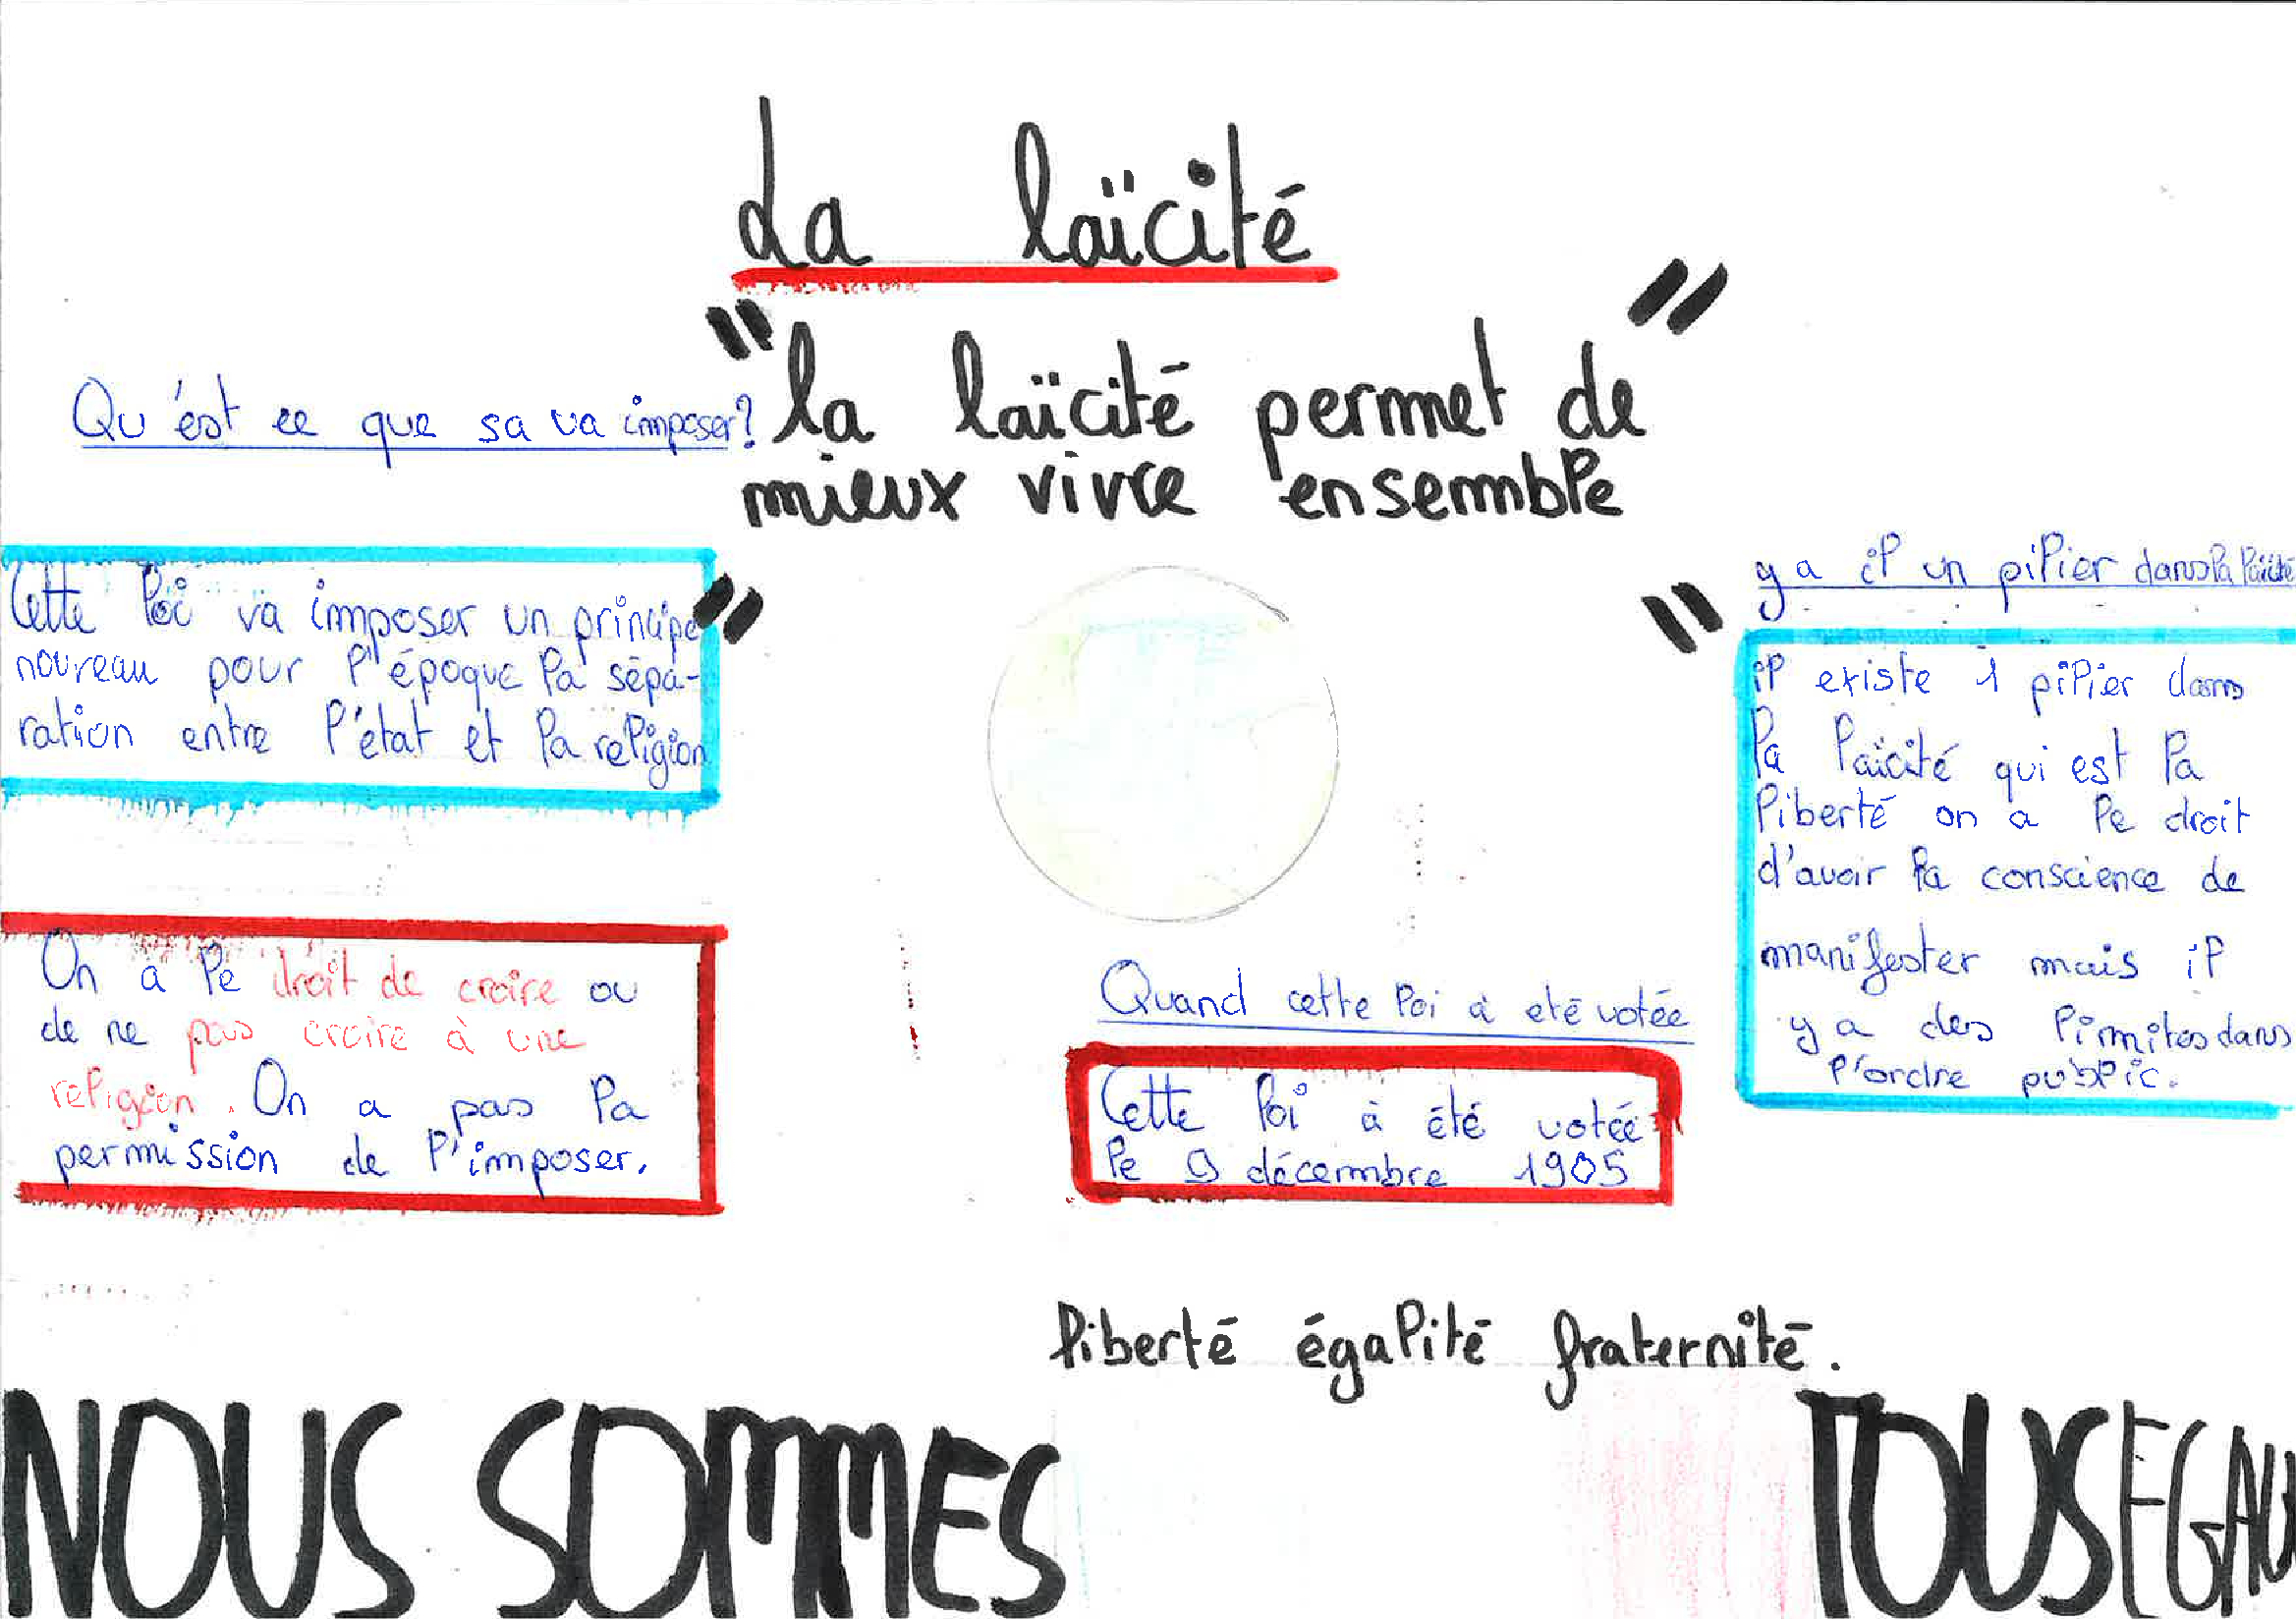 La laïcité
"la laïcité permet de
mieux vivre ensemble"
Qu'est ce que sa va imposer?
Cette loi va imposer un principe
nouveau pour l'époque la sépa-
ration entre l'état et la religion
On a le droit de croire ou
de ne pas croire à une
religion. On a pas la
permission de l'imposer.
Quand cette loi à eté votée
Cette loi à été votée
le 9 décembre 1905
ya il un pilier dans la laïcité
il existe 1 pilier dans
la laïcité qui est la
liberté on a le droit
d'avoir la conscience de
manifester mais il
y a des limites dans
l'ordre public.
liberté égalité fraternité.
NOUS SOMMES TOUS EGAUX